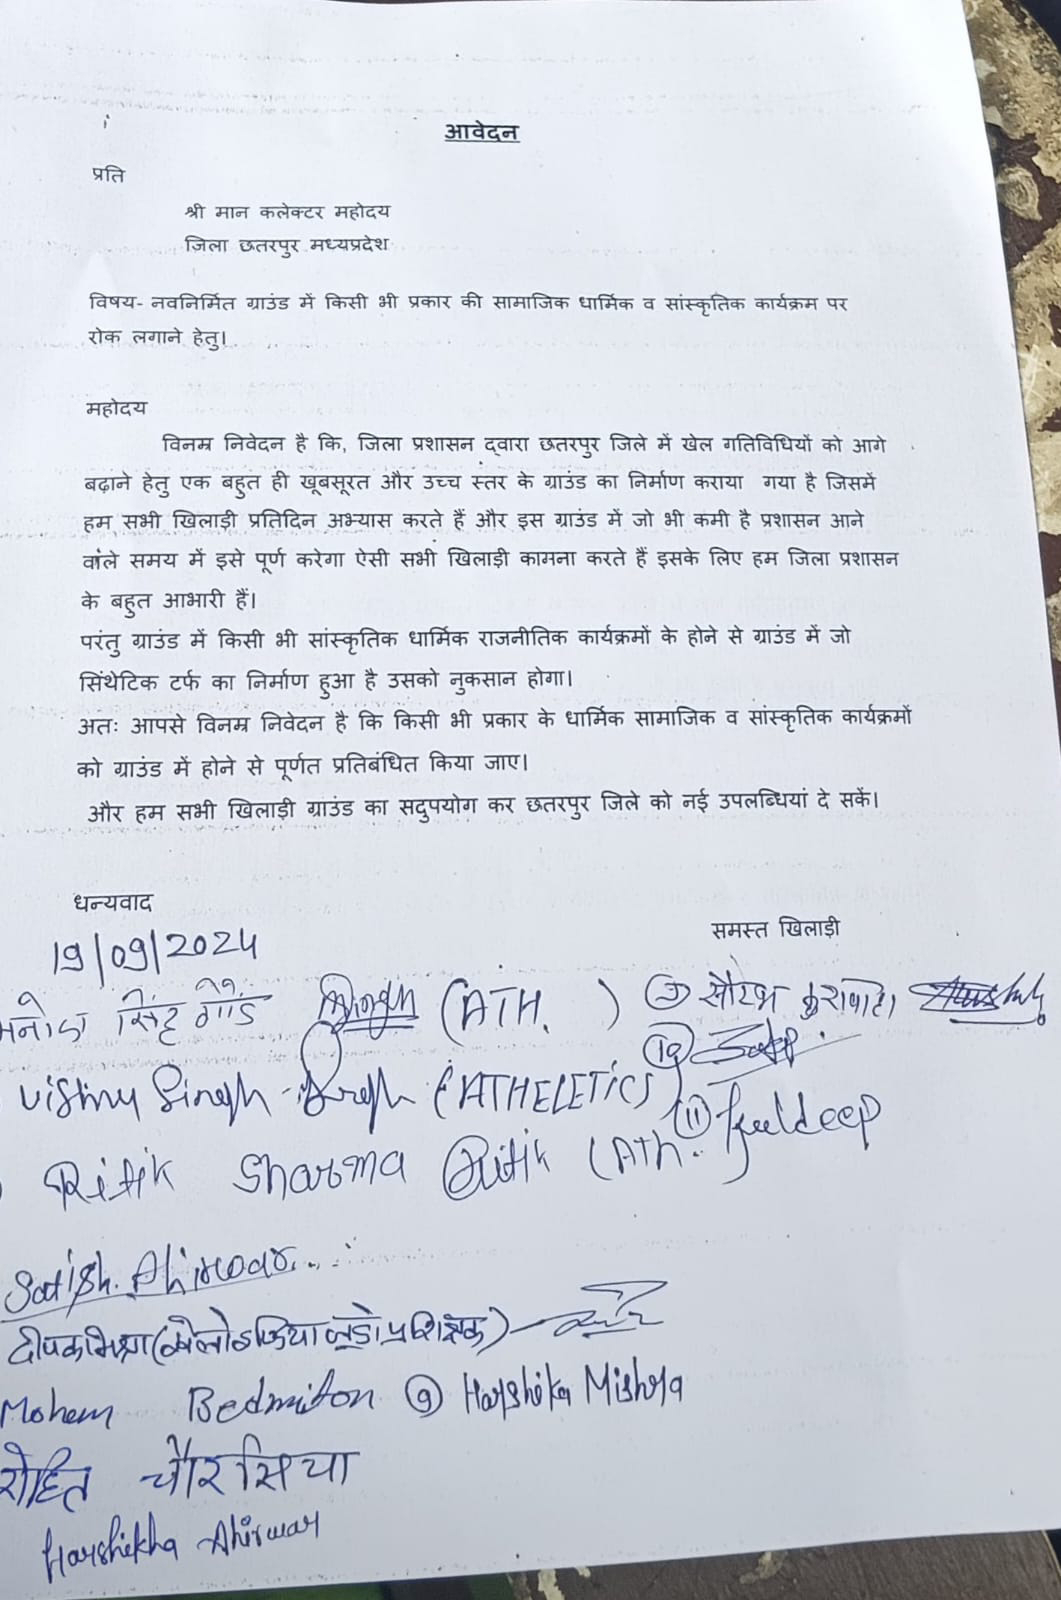 आवेदन
प्रति
श्री मान कलेक्टर महोदय
जिला छतरपुर मध्यप्रदेश
विषय- नवनिर्मित ग्राउंड में किसी भी प्रकार की सामाजिक धार्मिक व सांस्कृतिक कार्यक्रम पर
रोक लगाने हेतु।
महोदय
विनम्र निवेदन है कि, जिला प्रशासन द्वारा छतरपुर जिले में खेल गतिविधियों को आगे
बढ़ाने हेतु एक बहुत ही खूबसूरत और उच्च स्तर के ग्राउंड का निर्माण कराया गया है जिसमें
हम सभी खिलाड़ी प्रतिदिन अभ्यास करते हैं और इस ग्राउंड में जो भी कमी है प्रशासन आने
वाले समय में इसे पूर्ण करेगा ऐसी सभी खिलाड़ी कामना करते हैं इसके लिए हम जिला प्रशासन
के बहुत आभारी हैं।
परंतु ग्राउंड में किसी भी सांस्कृतिक धार्मिक राजनीतिक कार्यक्रमों के होने से ग्राउंड में जो
सिंथेटिक टर्फ का निर्माण हुआ है उसको नुकसान होगा।
अतः आपसे विनम्र निवेदन है कि किसी भी प्रकार के धार्मिक सामाजिक व सांस्कृतिक कार्यक्रमों
को ग्राउंड में होने से पूर्णत प्रतिबंधित किया जाए।
और हम सभी खिलाड़ी ग्राउंड का सदुपयोग कर छतरपुर जिले को नई उपलब्धियां दे सकें।
धन्यवाद
समस्त खिलाड़ी
19/09/2024
सिंह गोंड (ATH. ) सौरभ
Vishnu Singh Singh (ATHELETICS) 10
Ritik Sharma Ritik (Ath. 11 Kuldeep
Satish. Ahirwar
दीपक मिश्रा (खेलो इंडिया जूडो प्रशिक्षक)
Bedmiton 9 Harshika Mishra
रोहित चौरसिया
Harshikha Ahirwar